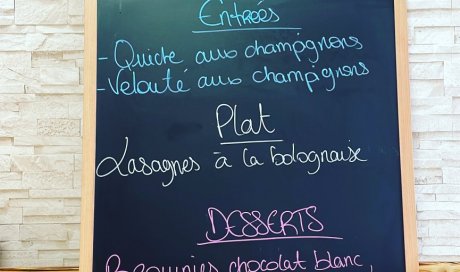 Entrées
- Quiche aux champignons
- Velouté aux champignons
Plat
Lasagnes à la bolognaise
DESSERTS
Brownies chocolat blanc,